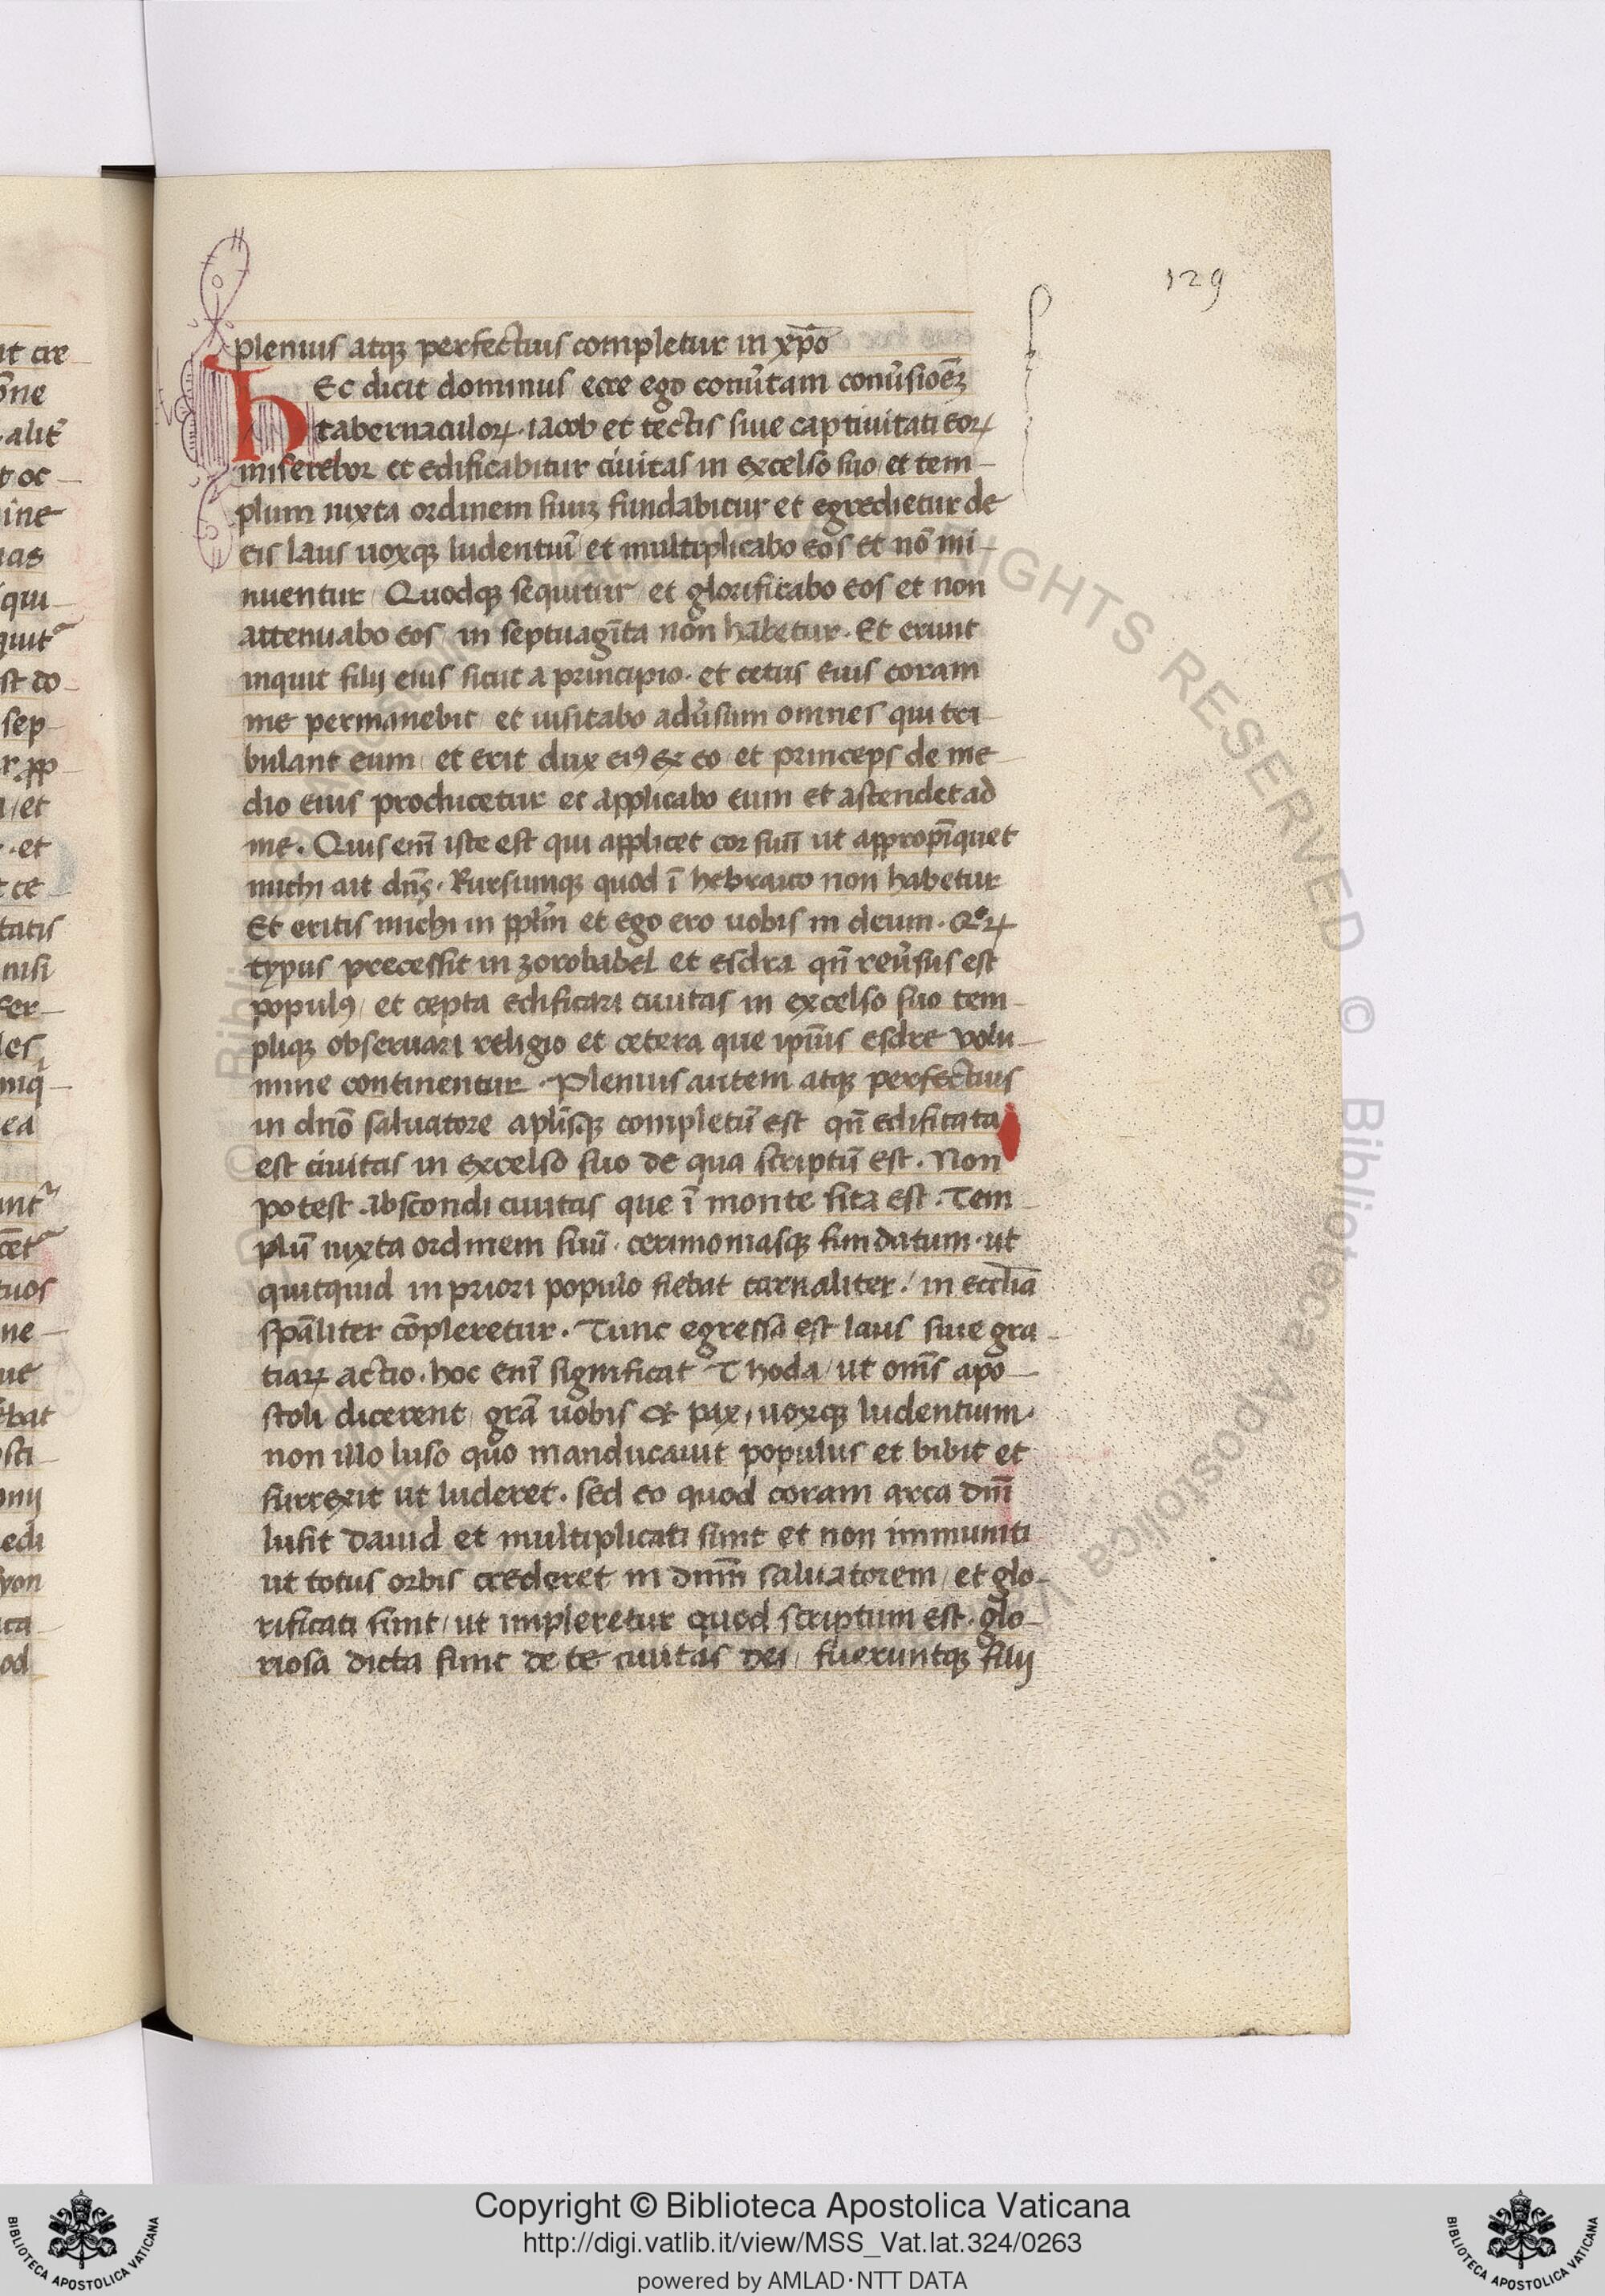 129
plenius atqꝫ perfectius completur in xp̄o
hEc dicit dominus ecce ego conũtam conũsioēꝫ
tabernaculoꝝ · iacob et tectis siue captiuitati eoꝝ
miserebor et edificabitur ciuitas in excelso suo / et tem-
plum iuxta ordinem suuꝫ fundabitur et egredietur de
eis laus uoxqꝫ ludentiū et multiplicabo eos et nō mi-
nuentur / Quodqꝫ sequitur / et glorificabo eos et non
attenuabo eos / in septuagīta non habetur · Et erunt
inquit filij eius sicut a principio · et cetus eius coram
me permanebit / et uisitabo adũsum omnes qui tri-
bulant eum / et erit dux eiꝰ ex eo / et princeps de me-
dio eius producetur et applicabo eum et ascendet ad
me · Quis eni᷒m iste est qui applicet cor suū ut appropīquet
michi ait dn̄s · Rursumqꝫ quod ī hebraico non habetur
Et eritis michi in ppl̄m et ego ero uobis in deum · Qꝛꝝ
typus precessit in zorobabel et esdra qn̄ reũsus est
populꝰ / et cepta edificari ciuitas in excelso suo tem-
pliqꝫ obseruari religio et cetera que ipīus esdre volu-
mine continentur · Plenius autem atqꝫ perfectius
in dn̄o saluatore apl̄isqꝫ completū est qn̄ edificata
est ciuitas in excelso suo de qua scriptū est · Non
potest abscondi ciuitas que ī monte sita est · Tem-
plū iuxta ordinem suū · cerimoniasqꝫ fundatum · ut
quitquid in priori populo fiebat carnaliter / in eccl̄ia
sp̄aliter cōpleretur · Tunc egressa est laus siue gra-
tiaꝝ actio · hoc enī significat Thoda / ut om̄s apo-
stoli dicerent / gra᷒ uobis et pax / uoxqꝫ ludentium ·
non illo luso quo manducauit populus et bibit et
surrexit ut luderet · sed eo quod coram arca dn̄i
lusit dauid et multiplicati sunt et non imminuti
ut totus orbis crederet in dn̄m saluatorem / et glo-
rificati sunt / ut impleretur quod scriptum est · glo-
riosa dicta sunt de te ciuitas dei / fueruntqꝫ filij
Copyright © Biblioteca Apostolica Vaticana
http://digi.vatlib.it/view/MSS_Vat.lat.324/0263
powered by AMLAD·NTT DATA
BIBLIOTECA APOSTOLICA VATICANA
BIBLIOTECA APOSTOLICA VATICANA